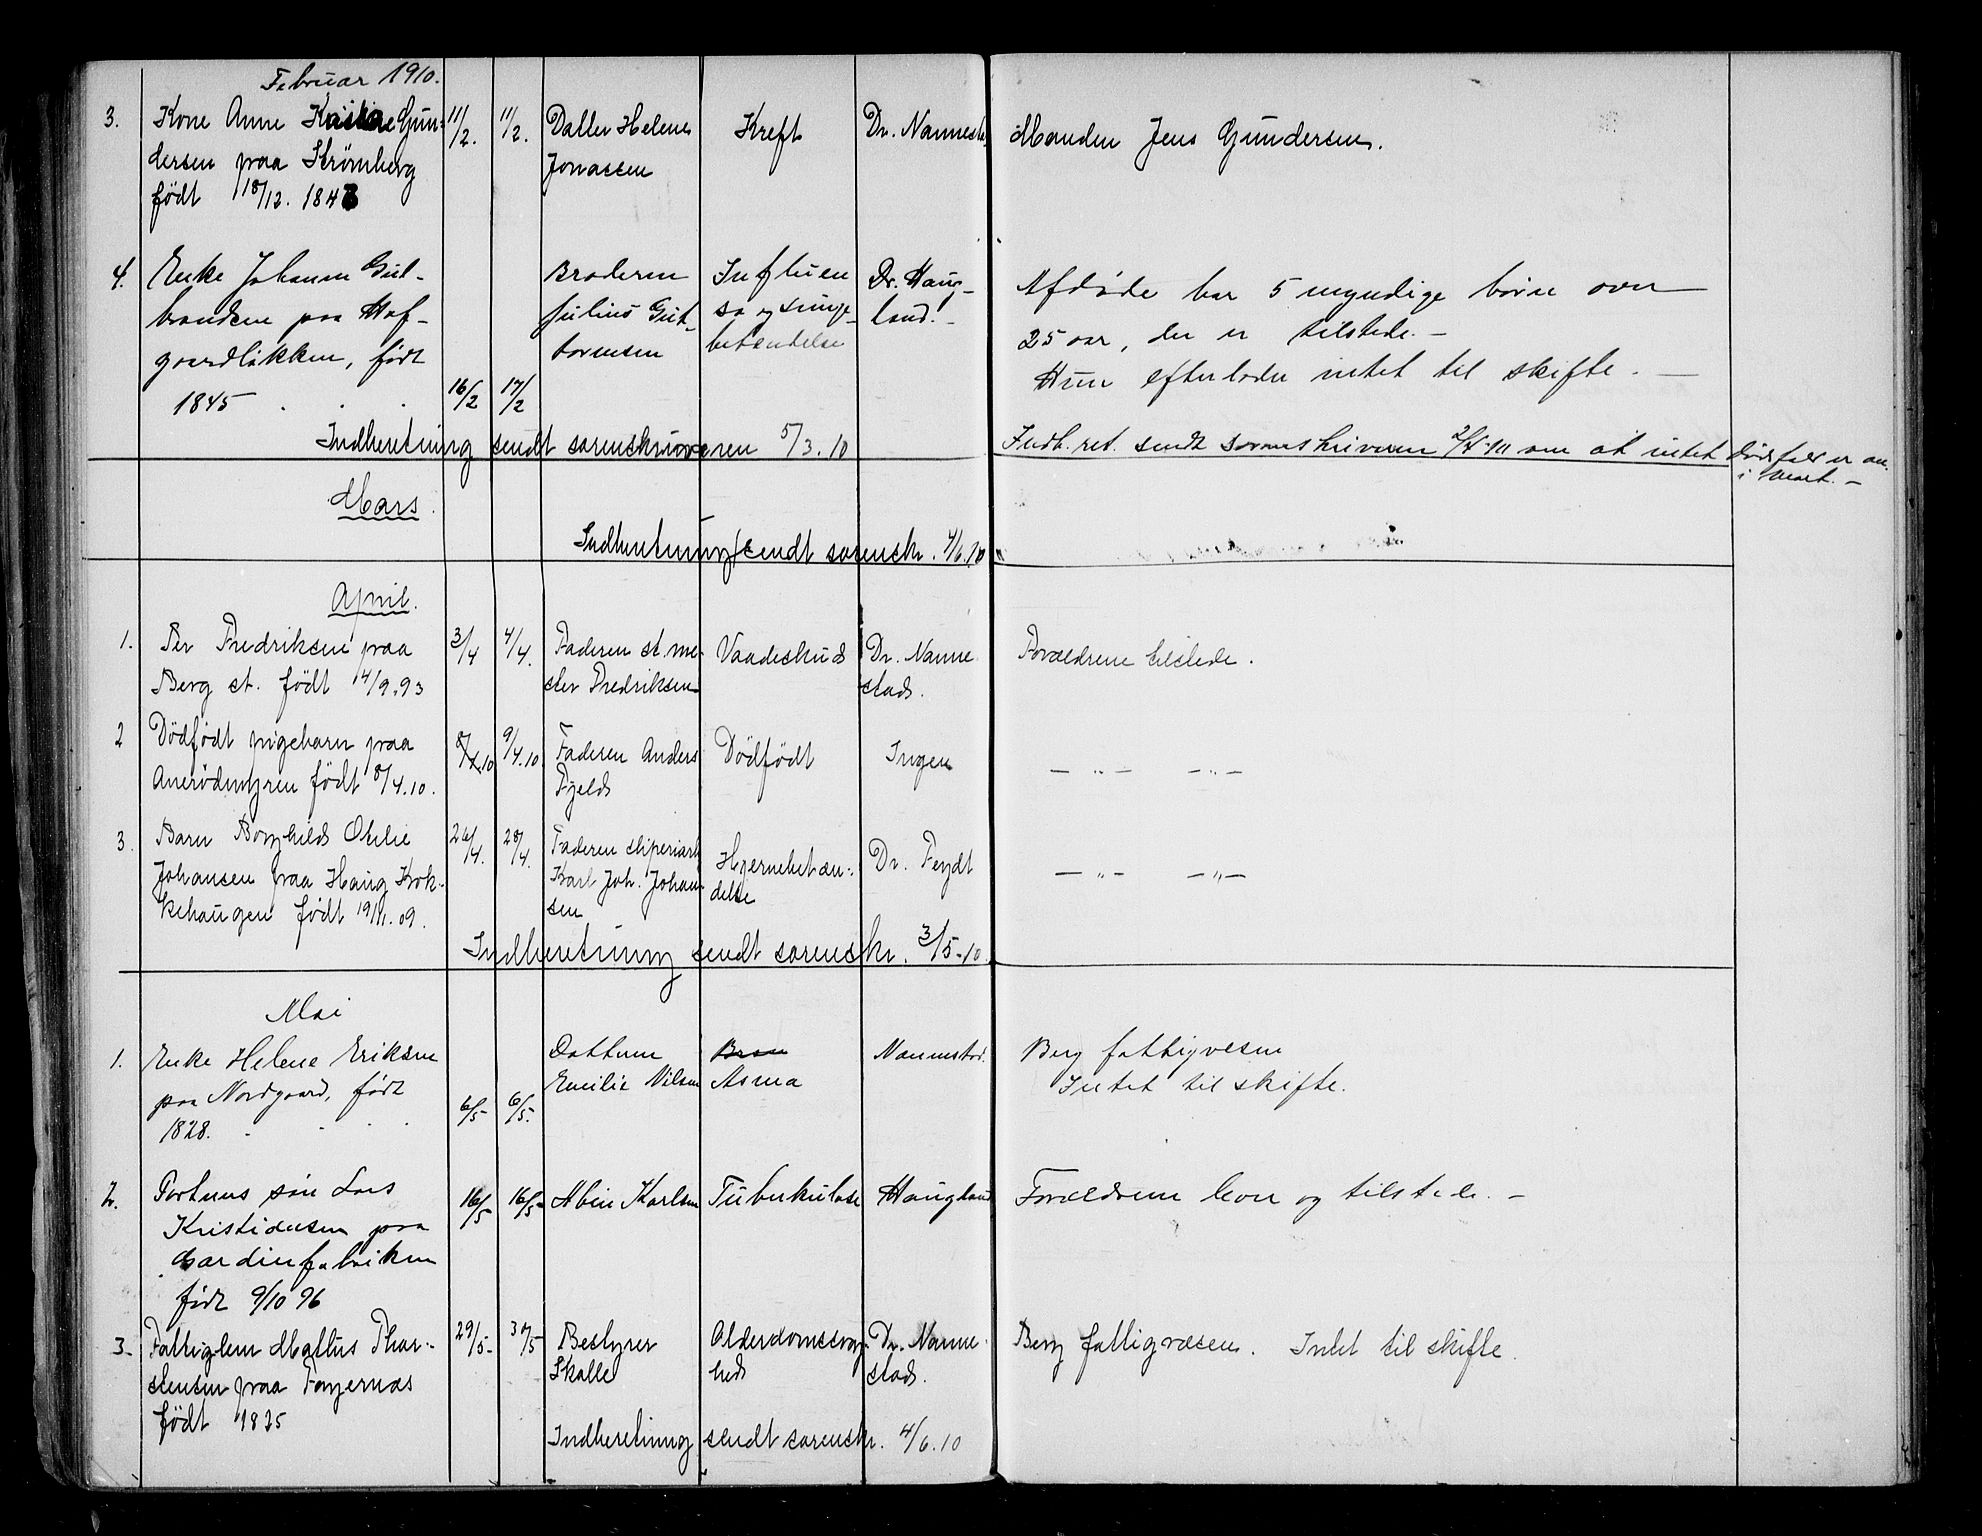 Februar 1910.
3. Kone Anne Gun-
dersen paa Strømberg
født 18/12. 184
11/2. 11/2. Datter Helene
Jonassen
Kreft
Dr. Nannestad
Manden Jens Gundersen.
4. Enke Johanne Gul-
brandsen paa Haf-
gaardløkken, født
1845
16/2 17/2
Broderen
Julius Gut-
tormsen
Influen
sa og lunge-
betendelse
Dr. Haug-
land.
Afdøde har 5 myndige børn over
25 aar, der er tilstede.-
Hun efterlader intet til skifte.
Indberetning sendt sorenskriveren 5/3.10
Indb.ret. sendt sorenskriveren om at intet dødsfald er an.
i Mart.-
Mars.
Indberetning sendt sorenskr. 4/6.10
April.
1. Per Fredriksen paa
Berg st. født 14/9.93
3/4 4/4. Faderen st.me-
ster Fredriksen
Vaadeskud
Dr. Nanne
stad.
Forældrene tilstede.
2 Dødfødt pigebarn paa
Anerødmyren født 8/4.10.
8/4.10 9/4.10. Faderen Anders
Fjeld
Dødfødt
Ingen
— „ — — „ —
3. Barn Borghild Otilie
Johansen paa Haug Krok-
kehaugen født 19/11.09.
26/4. 28/4. Faderen sliperiarb
Karl Joh. Johan-
sen
Hjernebetæn-
delse
Dr. Feydt
— „ — — „ —
Indberetning sendt sorenskr. 3/5-10
Mai
1. Enke Helene Eriksen
paa Nordgaard, født
1828.
6/5 6/5. Datteren
Emilie Nilsen
Asma
Nannestad.
Berg fattigvesen
Intet til skifte.
2. søn Lars
Kristiansen paa
Gardinfabriken
født 9/10 96
16/5 16/5 Karlsen
Tuberkulose
Haugland
Forældrene lever og tilstede. -
3. Fattiglem Mattis Thor-
stensen paa Fagernæs
født 1825
29/5- 30/5 Bestyrer
Skolle
Alderdomssvag-
hed
Dr. Nanne-
stad.
Berg fattigvæsen. Intet til skifte.
Indberetning sendt sorenskr. 4/6.10